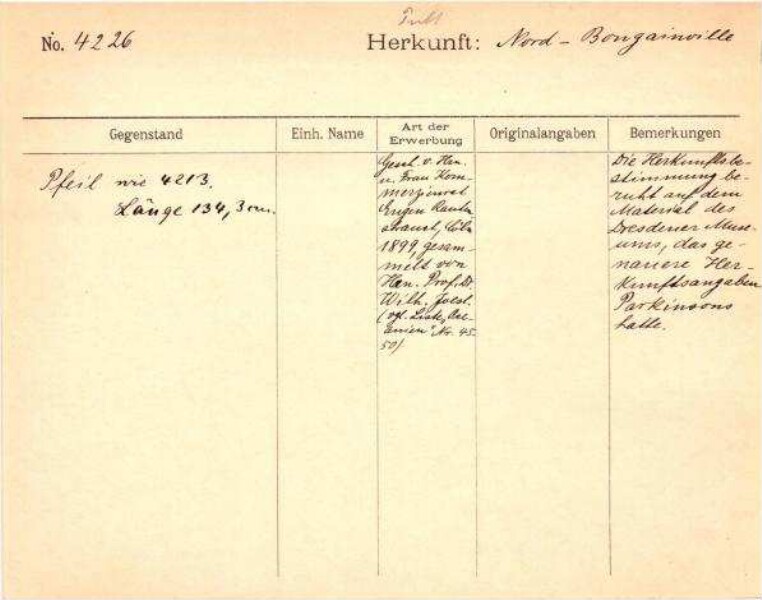 No. 4226
Herkunft: Nord - Bougainville
Gegenstand
Einh. Name
Art der
Erwerbung
Originalangaben
Bemerkungen
Pfeil wie 4213.
Länge 134,3 cm.
Gesch. v. Hrn.
u. Frau Kom-
merzienrat
Eugen Rauten
strauch, Cöln
1899, gesam-
melt von
Hrn. Prof. Dr.
Wilh. Joest.
(vgl. Liste "Oze-
anien" Nr. 45
50)
Die Herkunftsbe-
stimmung be-
ruht auf dem
Material des
Dresdener Muse-
ums, das ge-
nauere Her-
kunftsangaben
Parkinsons
hatte.